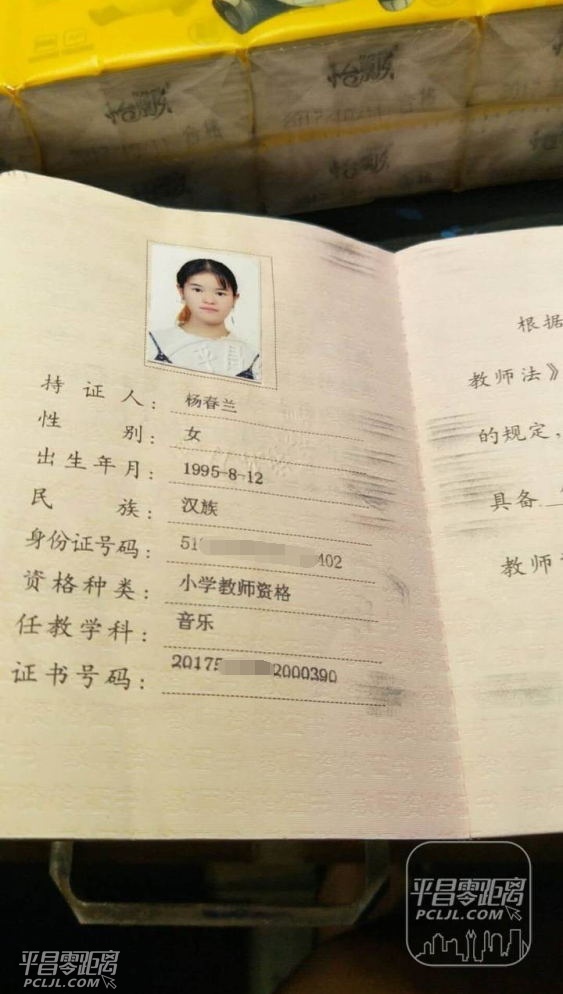 怡飘
怡飘
2017-10/11 合格
怡飘
持证人: 杨春兰
性别: 女
出生年月: 1995-8-12
民族: 汉族
身份证号码: 51 402
资格种类: 小学教师资格
任教学科: 音乐
证书号码: 20175 2000390
根据
教师法》
的规定,
具备
教师
平昌零距离
PCLJL.COM
平昌零距离
PCLJL.COM